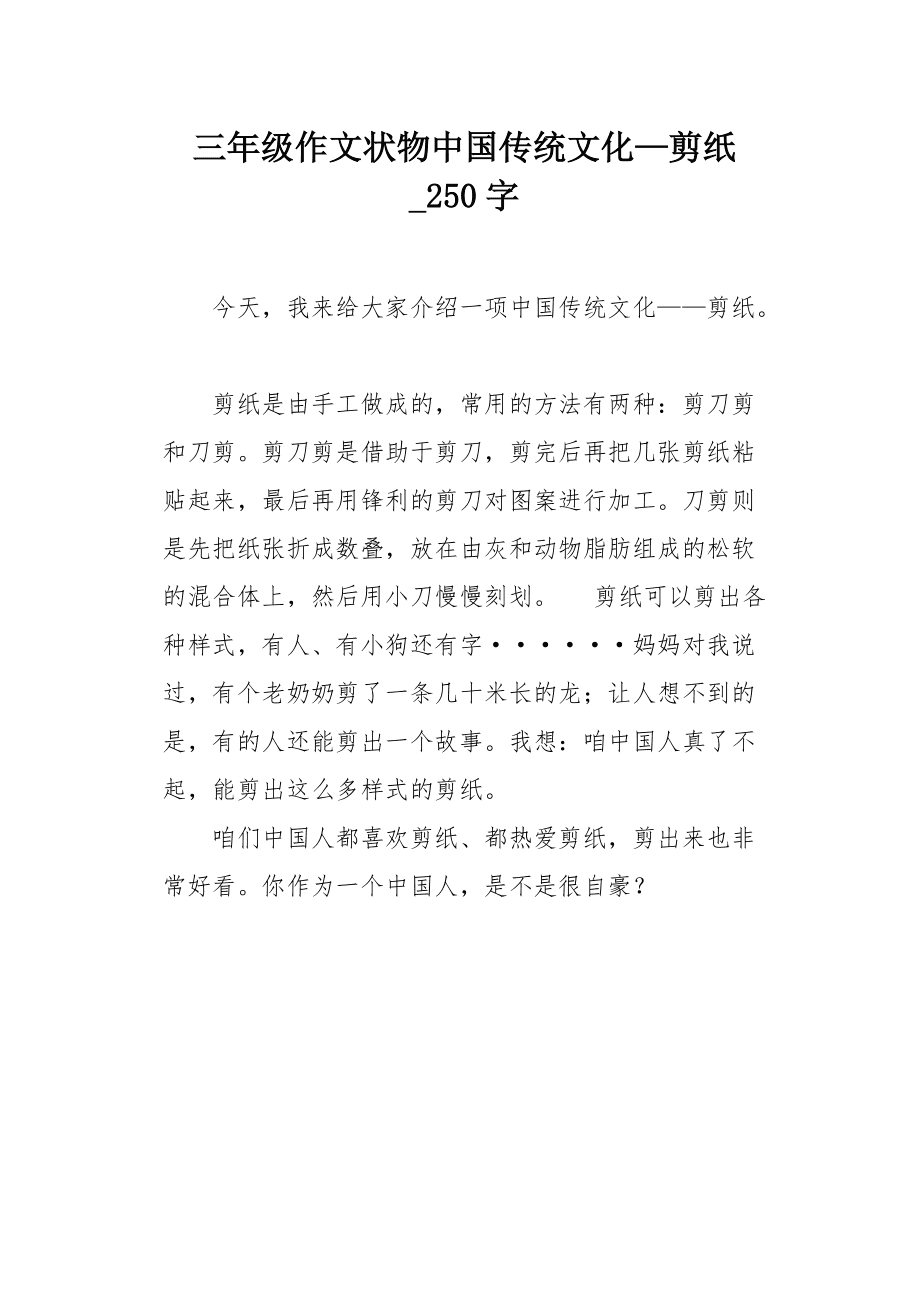 三年级作文状物中国传统文化—剪纸
_250 字
今天，我来给大家介绍一项中国传统文化——剪纸。
剪纸是由手工做成的，常用的方法有两种：剪刀剪
和刀剪。剪刀剪是借助于剪刀，剪完后再把几张剪纸粘
贴起来，最后再用锋利的剪刀对图案进行加工。刀剪则
是先把纸张折成数叠，放在由灰和动物脂肪组成的松软
的混合体上，然后用小刀慢慢刻划。　剪纸可以剪出各
种样式，有人、有小狗还有字······妈妈对我说
过，有个老奶奶剪了一条几十米长的龙；让人想不到的
是，有的人还能剪出一个故事。我想：咱中国人真了不
起，能剪出这么多样式的剪纸。
咱们中国人都喜欢剪纸、都热爱剪纸，剪出来也非
常好看。你作为一个中国人，是不是很自豪？